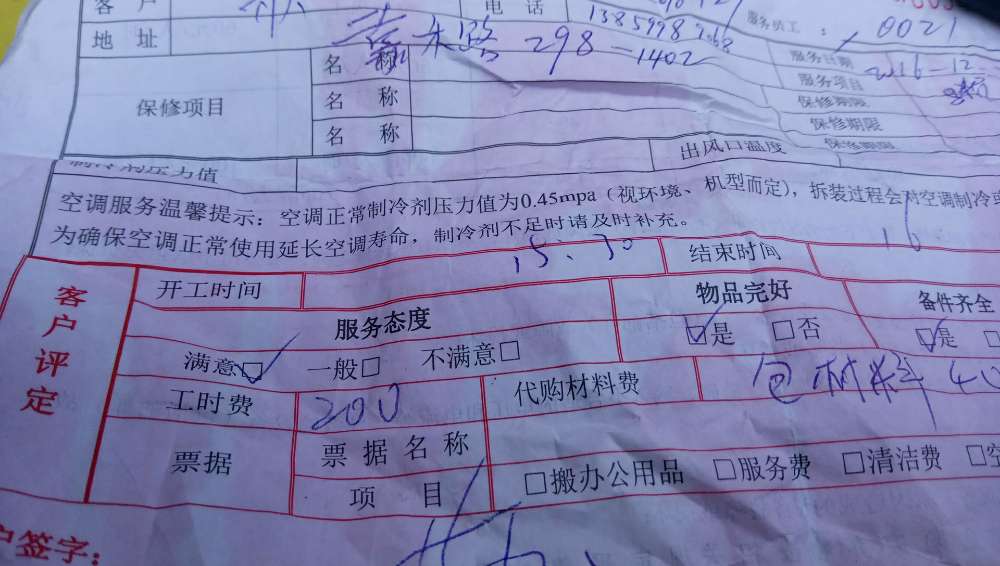 客 户 电 话 服务员工: 0021
地 址 298-1402 服务日期 2016-12
保修项目 名 称 服务项目
名 称 保修期限
名 称 保修期限
保修期限
制冷剂压力值 出风口温度
空调服务温馨提示：空调正常制冷剂压力值为0.45mpa（视环境、机型而定），拆装过程会对空调制冷
为确保空调正常使用延长空调寿命，制冷剂不足时请及时补充。
开工时间 15:30 结束时间 16
客户评定
服务态度 物品完好 备件齐全
满意☑ 一般□ 不满意□ ☑是 □否 ☑是
工时费 200 代购材料费 包材料 40
票据 票据名称
项 目 □搬办公用品 □服务费 □清洁费 □空
户签字：